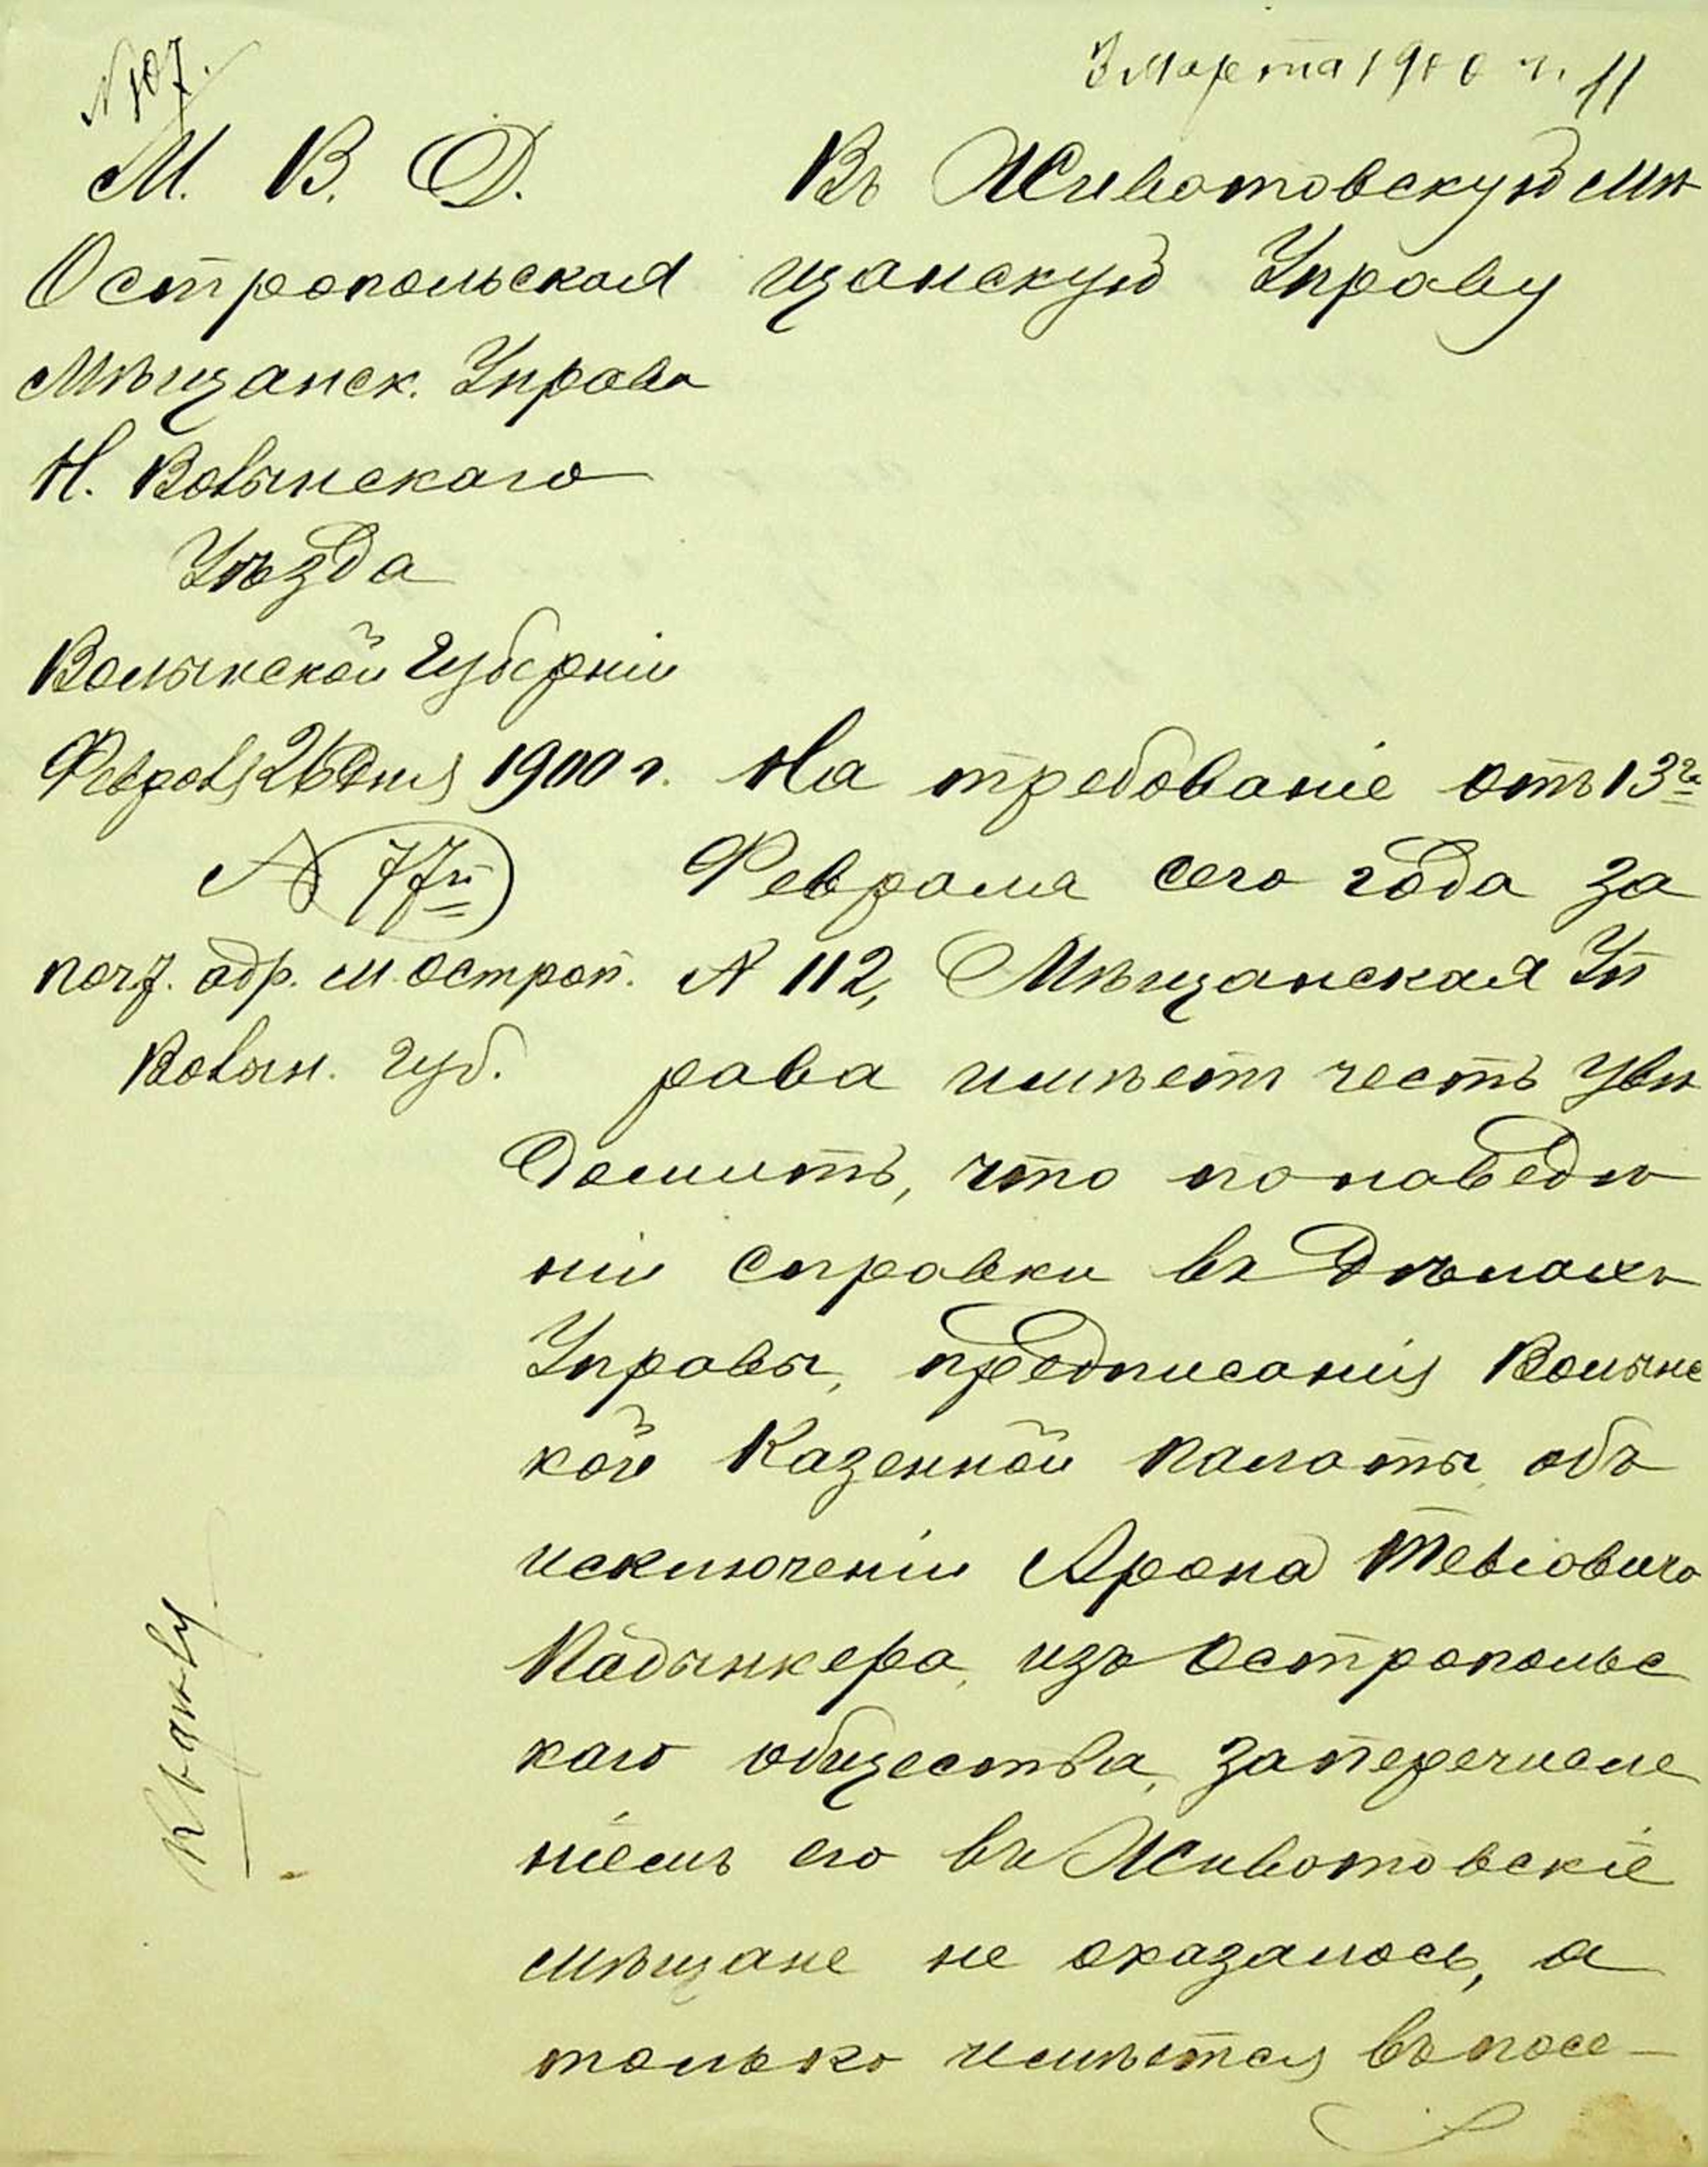 N 107.
3 Марта 1900 г. 11
М. В. Д.
Остропольская
Мѣщанск. Управа
Н. Волынскаго
Уѣзда
Волынской Губерніи
Февраля 26 Дня 1900 г.
N 77й
почт. адр. м. остроп.
Волын. Губ.
Въ Животовскую мѣ
щанскую Управу
На требованіе отъ 13го
Февраля сего года за
N 112, Мѣщанская Уп
рава имѣетъ честь увѣ
домить, что по наведѣ
ніи справки въ Дѣлахъ
Управы, предписанія Волынс
кой Казенной палаты объ
исключеніи Арона Тевіовича
из Остропольс
каго общества, за перечисле
ніемъ его въ Животовскіе
мѣщане не оказалось, а
только имѣется въ посе-